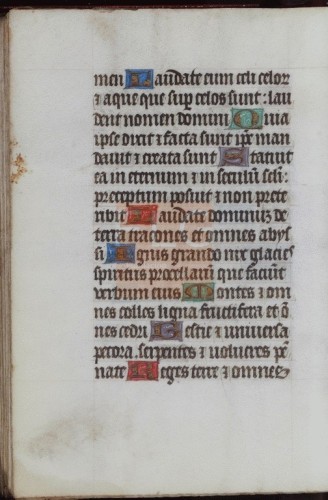 men Laudate eum celi celor
⁊ aque que sup celos sunt : lau
dent nomen domini Quia
ipse dixit ⁊ facta sunt ipe man
dauit ⁊ creata sunt Statuit
ea in eternum ⁊ in seculum scli :
preceptum posuit ⁊ non prete
ribit Laudate dominuz de
terra dracones et omnes abys
si Ignis grando nix glacies
spiritus procellarum que faciunt
verbum eius Montes ⁊ om
nes colles ligna fructifera et o
nes cedri Bestie ⁊ uniuersa
pecora . serpentes ⁊ volucres pe
nate Reges terre ⁊ omnes